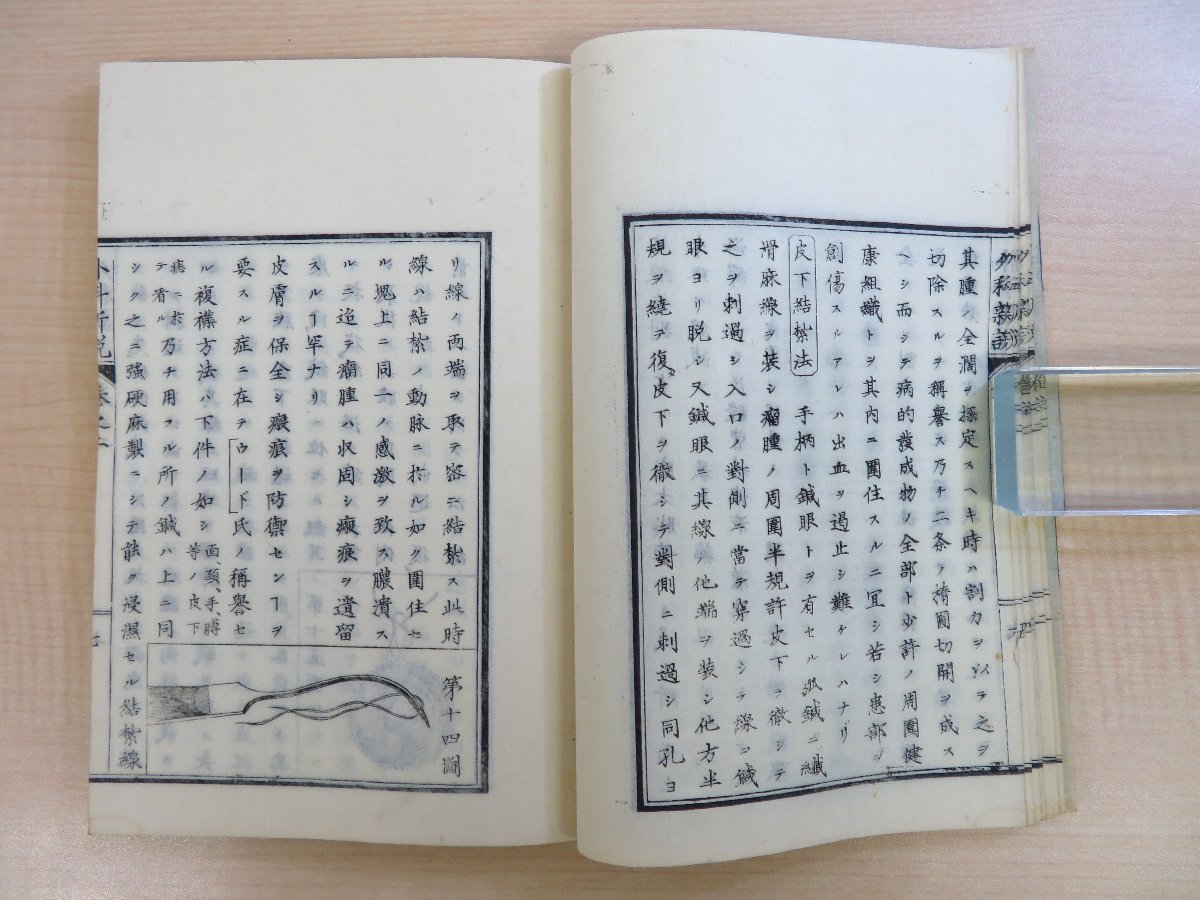 其腫ノ全濶ヲ探定スヘキ時ハ割力ヲ以テ之ヲ
切除スルヲ稱譽ス乃チ二条ノ楕圓切開ヲ成ス
ヘシ而シテ病的發成物ノ全部ト少許ノ周圍健
康組織トヲ其内ニ圍住スルニ冝シ若シ患部ヲ
創傷スルアレハ出血ヲ遏止シ難ケレハナリ
皮下結紮法 手柄ト鍼眼トヲ有セル弧鍼ニ纖
滑麻線ヲ装シ瘤腫ノ周圍半規許皮下ヲ徹シテ
之ヲ刺過シ入口ノ對側ニ當テ穿過シテ線ヲ鍼
眼ヨリ脱シ又鍼眼ニ其線ノ他端ヲ装シ他方半
規ヲ繞テ復皮下ヲ徹シテ對側ニ刺過シ同孔ヨ
リ線ノ両端ヲ取テ密ニ結紮ス此時
第十四圖
線ハ結紮ノ動脉ニ於ル如ク圍住セ
ル塊上ニ同一ノ感激ヲ致ス膿潰ス
ルニ迨テ瘤腫ハ収固シ瘢痕ヲ遺留
スルヿ罕ナリ
皮膚ヲ保全シ瘢痕ヲ防禦センヿヲ
要スル症ニ在テウード氏ノ稱譽セ
ル複襍方法ハ下件ノ如シ 面、頸、手、膊等ノ皮下
痣ニ於テ看ル 乃チ用フル所ノ鍼ハ上ニ同
シク之ニ強硬麻製ニシテ能ク浸濕セル結紮線
外科新説